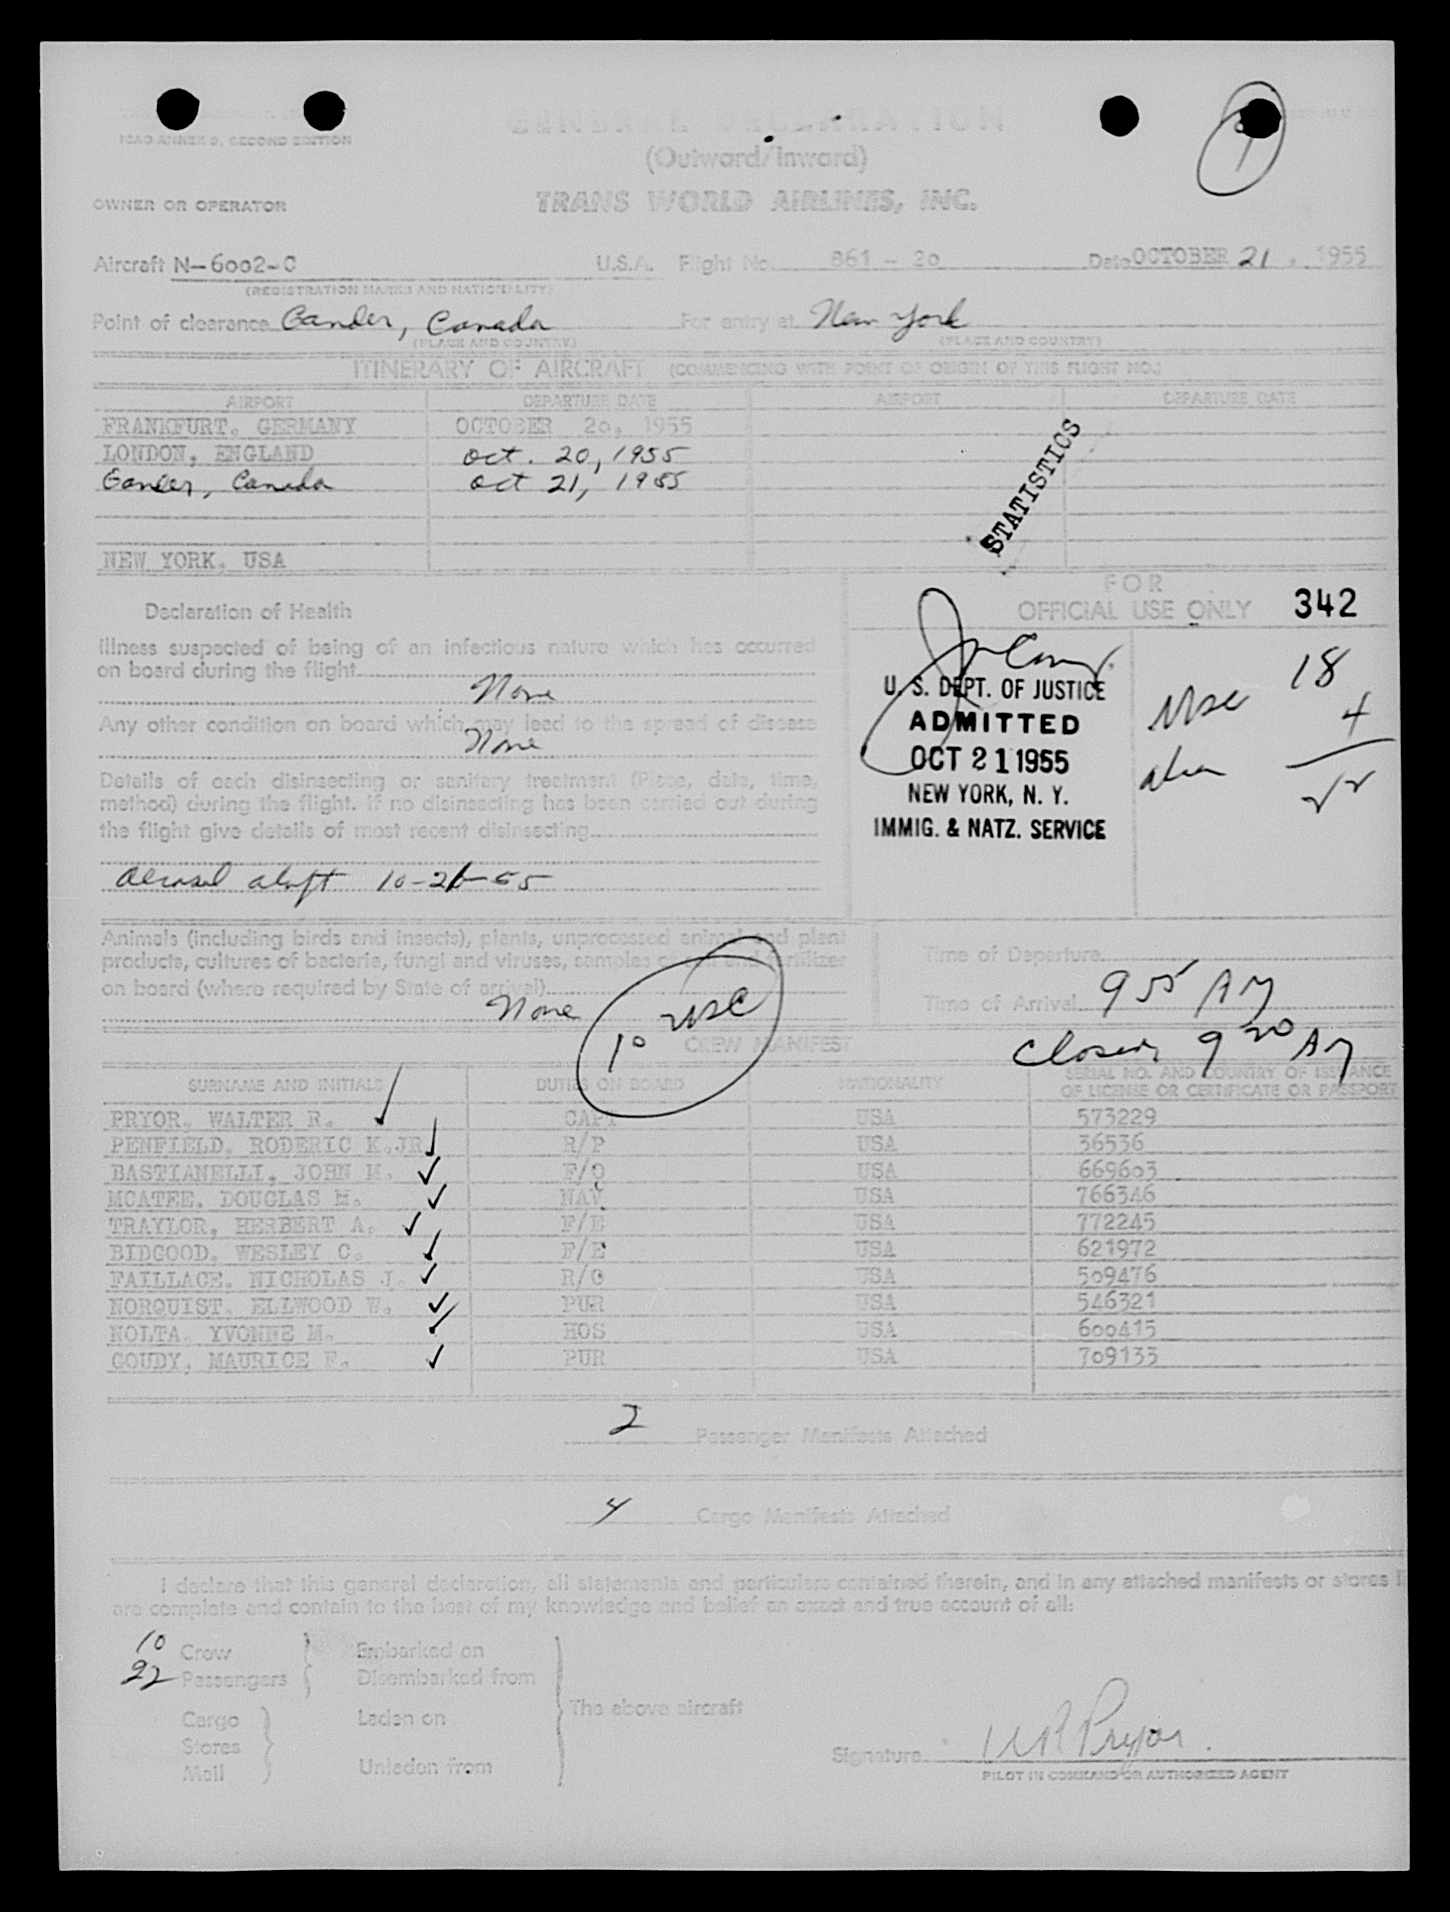 GENERAL DECLARATION
ICAO ANNEX 9, SECOND EDITION
(Outward/Inward)
OWNER OR OPERATOR
TRANS WORLD AIRLINES, INC.
Aircraft N-6002-C U.S.A. Flight No. 861 - 20 Date OCTOBER 21, 1955
(REGISTRATION MARKS AND NATIONALITY)
Point of clearance Gander, Canada For entry at New York
(PLACE AND COUNTRY) (PLACE AND COUNTRY)
ITINERARY OF AIRCRAFT (COMMENCING WITH POINT OF ORIGIN OF THIS FLIGHT NO.)
AIRPORT DEPARTURE DATE AIRPORT DEPARTURE DATE
FRANKFURT, GERMANY OCTOBER 20, 1955
LONDON, ENGLAND Oct. 20, 1955
Gander, Canada Oct 21, 1955
STATISTICS
NEW YORK, USA
FOR
OFFICIAL USE ONLY 342
Declaration of Health
Illness suspected of being of an infectious nature which has occurred
on board during the flight
None
Any other condition on board which may lead to the spread of disease
None
Details of each disinsecting or sanitary treatment (Place, date, time,
method) during the flight. If no disinsecting has been carried out during
the flight give details of most recent disinsecting
aerosol aloft 10-21-55
U.S. DEPT. OF JUSTICE
ADMITTED
OCT 21 1955
NEW YORK, N. Y.
IMMIG. & NATZ. SERVICE
usc 18
alien 4
22
Animals (including birds and insects), plants, unprocessed animal and plant
products, cultures of bacteria, fungi and viruses, samples of soil and fertilizer
on board (where required by State of arrival)
None
10 usc
Time of Departure
Time of Arrival 9 55 AM
Closed 9 20 AM
CREW MANIFEST
SURNAME AND INITIALS DUTIES ON BOARD NATIONALITY SERIAL NO. AND COUNTRY OF ISSUANCE
OF LICENSE OR CERTIFICATE OR PASSPORT
PRYOR, WALTER R. CAPT USA 573229
PENFIELD, RODERIC K.JR. R/P USA 36536
BASTIANELLI, JOHN M. F/O USA 669603
MCATEE, DOUGLAS H. NAV USA 766346
TRAYLOR, HERBERT A. F/E USA 772245
BIDGOOD, WESLEY C. F/E USA 621972
FAILLACE, NICHOLAS J. R/O USA 509476
NORQUIST, ELLWOOD W. PUR USA 546321
NOLTA, YVONNE M. HOS USA 600415
GOUDY, MAURICE F. PUR USA 709133
2 Passenger Manifests Attached
4 Cargo Manifests Attached
I declare that this general declaration, all statements and particulars contained therein, and in any attached manifests or stores
are complete and contain to the best of my knowledge and belief an exact and true account of all:
10 Crew Embarked on
22 Passengers Disembarked from
Cargo Laden on The above aircraft
Stores
Mail Unladen from
Signature W R Pryor.
PILOT IN COMMAND OR AUTHORIZED AGENT